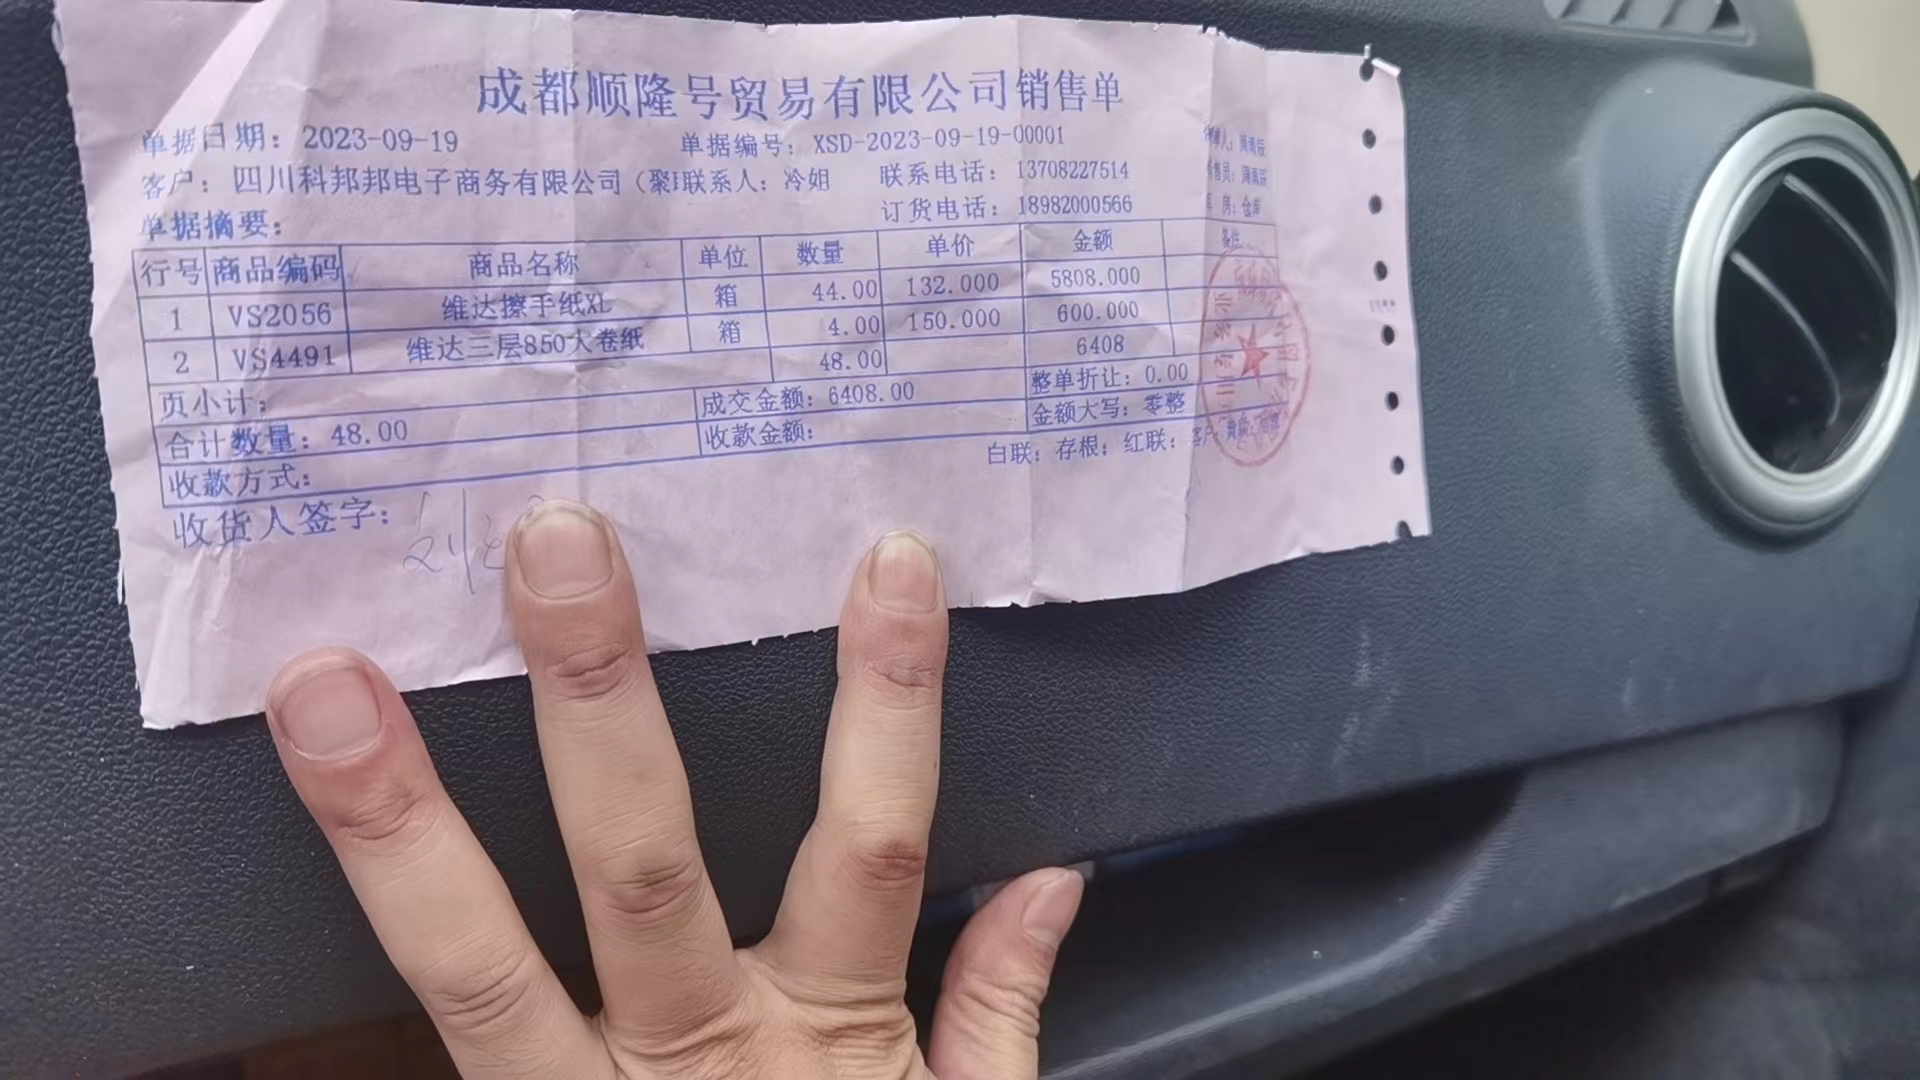 成都顺隆号贸易有限公司销售单
单据日期：2023-09-19 单据编号：XSD-2023-09-19-00001
客户：四川科邦邦电子商务有限公司（聚 联系人：冷姐 联系电话：13708227514
单据摘要： 订货电话：18982000566 房：仓库
行号 商品编码 商品名称 单位 数量 单价 金额 备注
1 VS2056 维达擦手纸XL 箱 44.00 132.000 5808.000
2 VS4491 维达三层850大卷纸 箱 4.00 150.000 600.000
页小计： 48.00 6408
合计数量：48.00 成交金额：6408.00 整单折让：0.00
收款方式： 收款金额： 金额大写：零整
收货人签字： 白联：存根；红联：客户